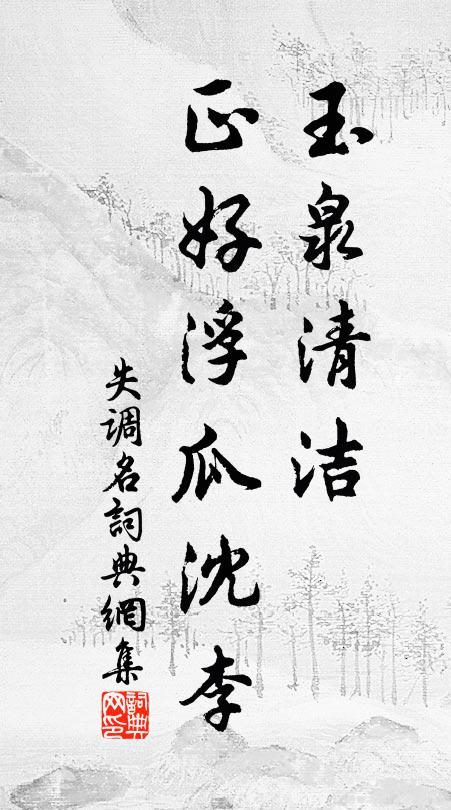 玉泉清洁
正好浮瓜沈李
失调名詞典網集
詞典网印